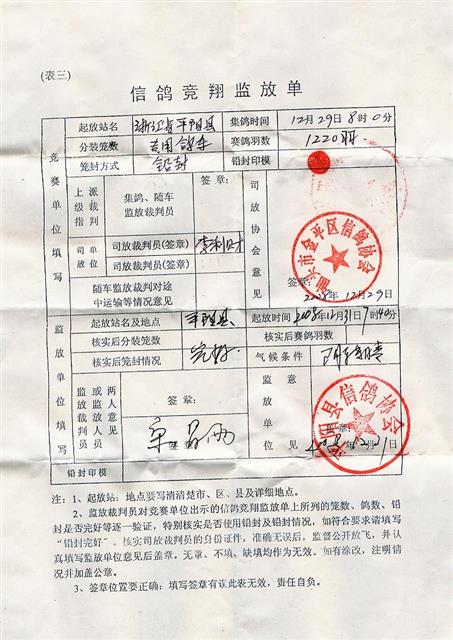 (表三)
信鸽竞翔监放单
竞赛单位填写
起放站名 浙江省平阳县 集鸽时间 12月29日8时0分
分装笼数 专用鸽车 赛鸽羽数 1220羽
笼封方式 铅封 铅封印模
上级指派裁判 集鸽、随车监放裁判员 签章:
司放单位 司放裁判员(签章) 李利财
司放裁判员(签章)
随车监放裁判对途中运输等情况意见
司放协会意见 签章: 2008年12月29日
汕头市金平区信鸽协会
监放单位填写
起放站名及地点 平阳县 起放时间 2008年12月31日7时40分
核实后分装笼数 核实后赛鸽羽数
核实后笼封情况 完好 气候条件
监放裁判员或两人人员意见 签章: 签章:
监放单位意见 签章: 2008.12月31日
县信鸽协会
铅封印模
注:1、起放站:地点要写清清楚市、区、县及详细地点。
2、监放裁判员对竞赛单位出示的信鸽竞翔监放单上所列的笼数、鸽数、铅
封是否完好等逐一验证,特别核实是否使用铅封及铅封情况,如符合要求请填写
“铅封完好”。核实司放裁判员的身份证件,准确无误后,监督公开放飞,并认
真填写监放单位意见后盖章。无章、不填、缺填均作为无效。如有涂改,注明情
况并加盖公章。
3、签章位置要正确:填写签章有误此表无效,责任自负。